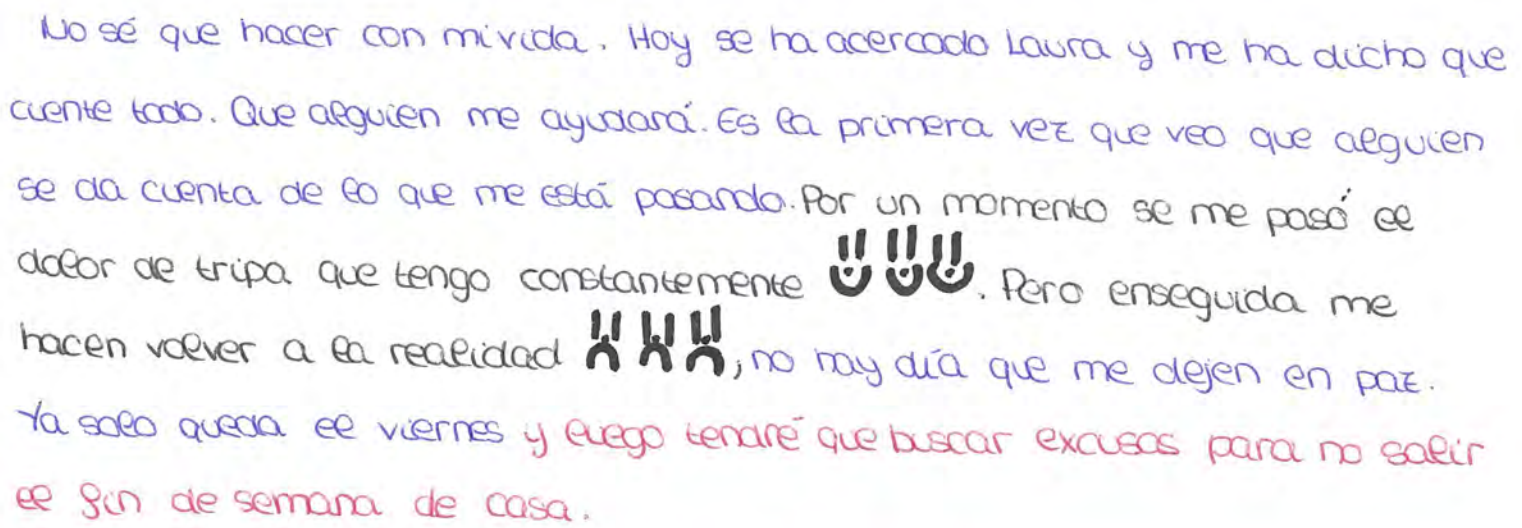 No sé que hacer con mi vida. Hoy se ha acercado Laura y me ha dicho que
cuente todo. Que alguien me ayudará. Es la primera vez que veo que alguien
se da cuenta de lo que me está pasando. Por un momento se me pasó el
dolor de tripa que tengo constantemente. Pero enseguida me
hacen volver a la realidad, no hay día que me dejen en paz.
Ya solo queda el viernes y luego tendré que buscar excusas para no salir
el fin de semana de casa.